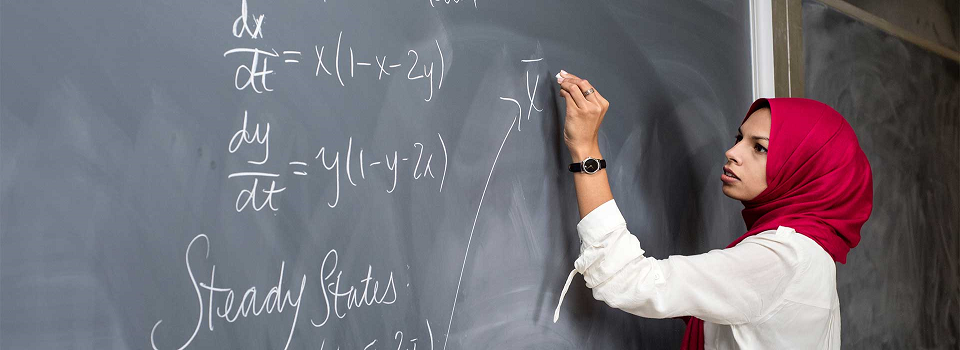 dx/dt = x(1-x-2y)
x̄
dy/dt = y(1-y-2x)
Steady States: